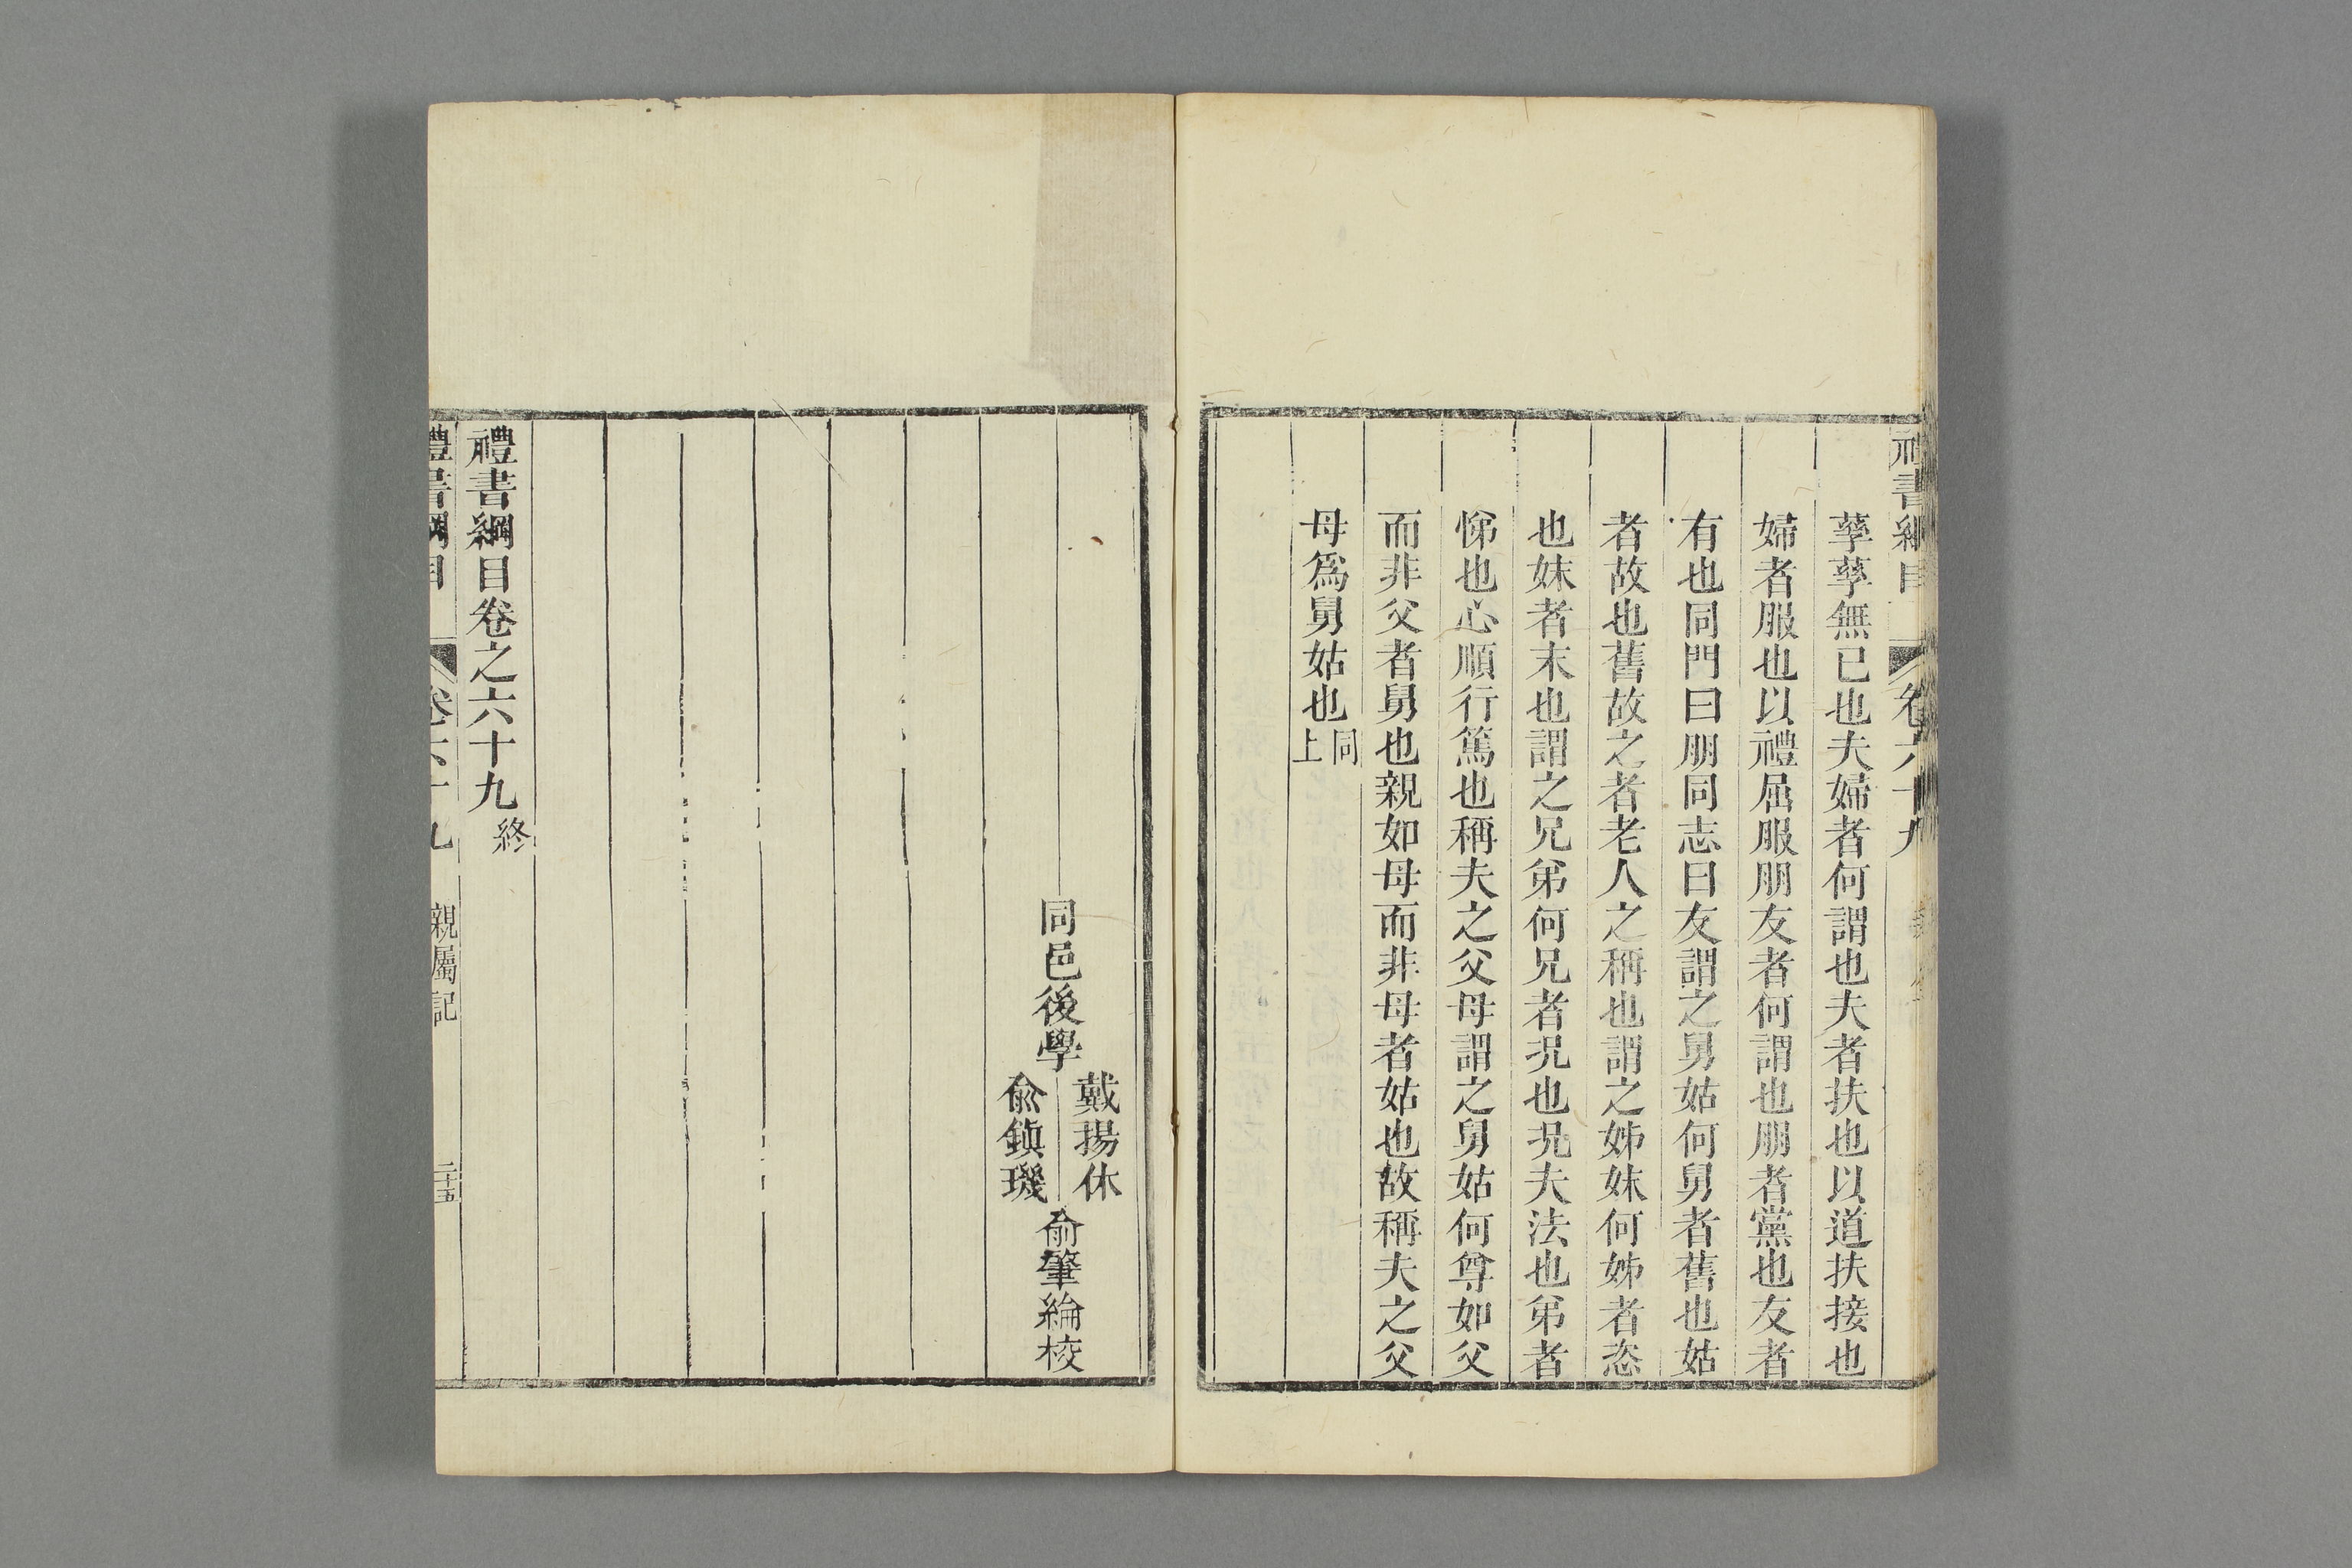 孳孳無已也夫婦者何謂也夫者扶也以道扶接也
婦者服也以禮屈服朋友者何謂也朋者黨也友者
有也同門曰朋同志曰友謂之舅姑何舅者舊也姑
者故也舊故之者老人之稱也謂之姊妹何姊者恣
也妹者末也謂之兄弟何兄者況也況夫法也弟者
悌也心順行篤也稱夫之父母謂之舅姑何尊如父
而非父者舅也親如母而非母者姑也故稱夫之父
母為舅姑也同上
同邑後學
戴揚休
俞鎮璣
俞肇綸校
禮書綱目卷之六十九終
禮書綱目
卷六十九
親屬記
二十五